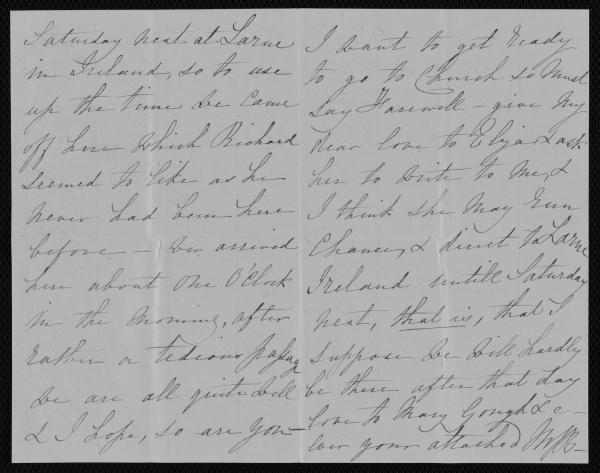 Saturday next at Larne
in Ireland, so to use
up the time we came
off here which Richard
seemed to like as he
never had been here
before — we arrived
here about one O'Clock
in the morning, after
rather a tedious passage
we are all quite well
& I hope, so are you —
I want to get ready
to go to Church so must
say Farewell — give my
dear love to Eliza & ask
her to write to me, &
I think she may run
chances, & direct to Larne
Ireland untill Saturday
next, that is, that I
suppose we will hardly
be there after that day
love to Mary Gough & e-
ver your attached